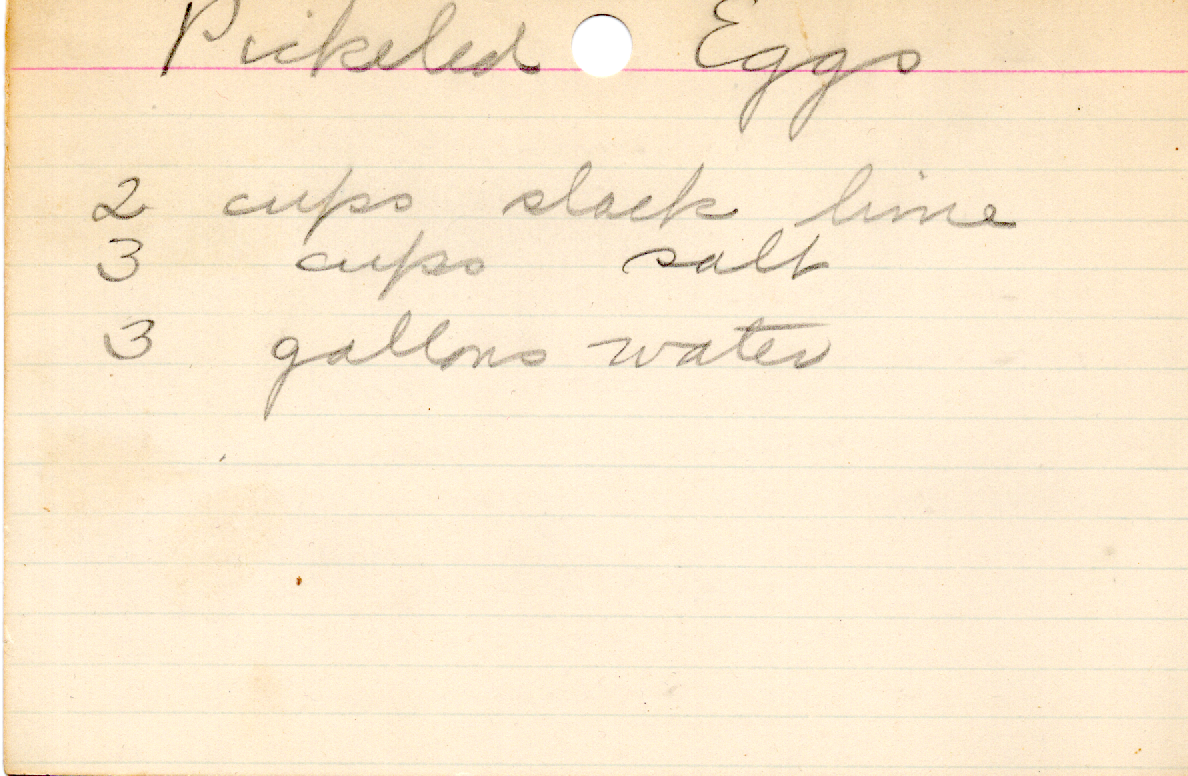 Pickeled Eggs
2 cups slack lime
3 cups salt
3 gallons water